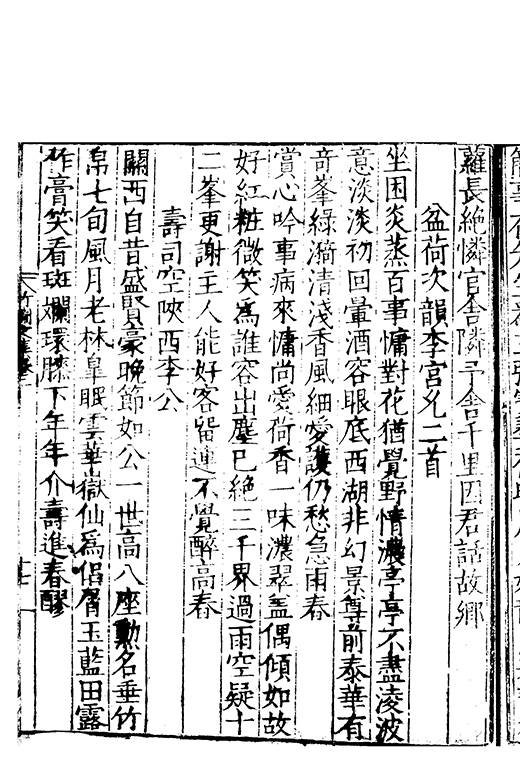 蘿長絶憐官舎隣子舎千里因君話故鄉
盆荷次韻李宮允二首
坐困炎蒸百事慵對花猶覺野情濃亭亭不盡凌波
意淡淡初回暈酒容眼底西湖非幻景尊前泰華有
竒峯綠漪清淺香風細愛護仍愁急雨舂
賞心吟事病來慵尚愛荷香一味濃翠盖偶傾如故
好紅粧微笑爲誰容出塵已絶三千界過雨空疑十
二峯更謝主人能好客留連不覺醉高舂
壽司空陜西李公
關西自昔盛賢豪晚節如公一世高八座勲名垂竹
帛七旬風月老林臯眠雲華嶽仙爲侣屑玉藍田露
作膏笑看斑斕環膝下年年介壽進春醪